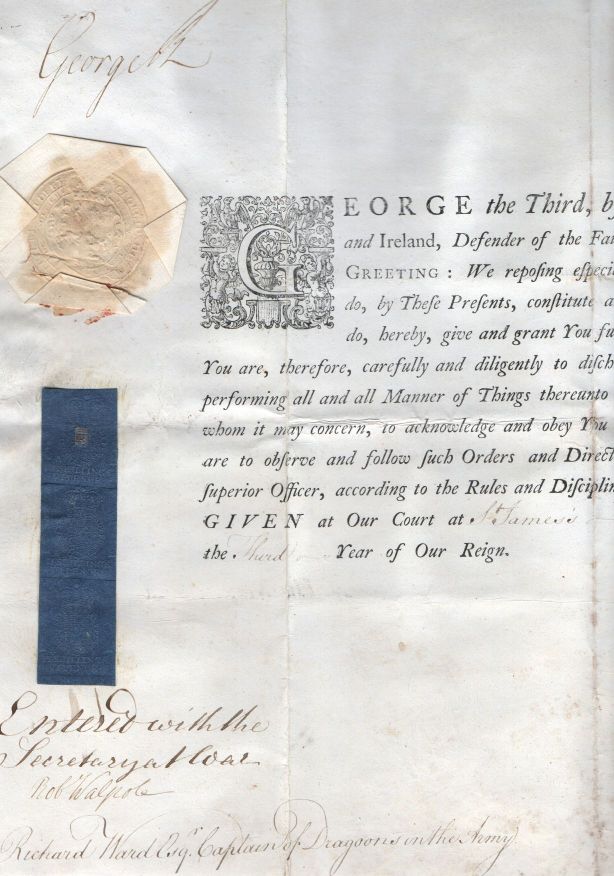 George R
GEORGE the Third, by
and Ireland, Defender of the Fai
GREETING: We repoſing eſpeci
do, by Theſe Preſents, conſtitute a
do, hereby, give and grant You fu
You are, therefore, carefully and diligently to diſch
performing all and all Manner of Things thereunto
whom it may concern, to acknowledge and obey You
are to obſerve and follow ſuch Orders and Direct
ſuperior Officer, according to the Rules and Diſciplin
GIVEN at Our Court at St. James's
the Third Year of Our Reign.
Entered with the
Secretary at War
Rob Walpole
Richard Ward Esqr. Captain of Dragoons in the Army